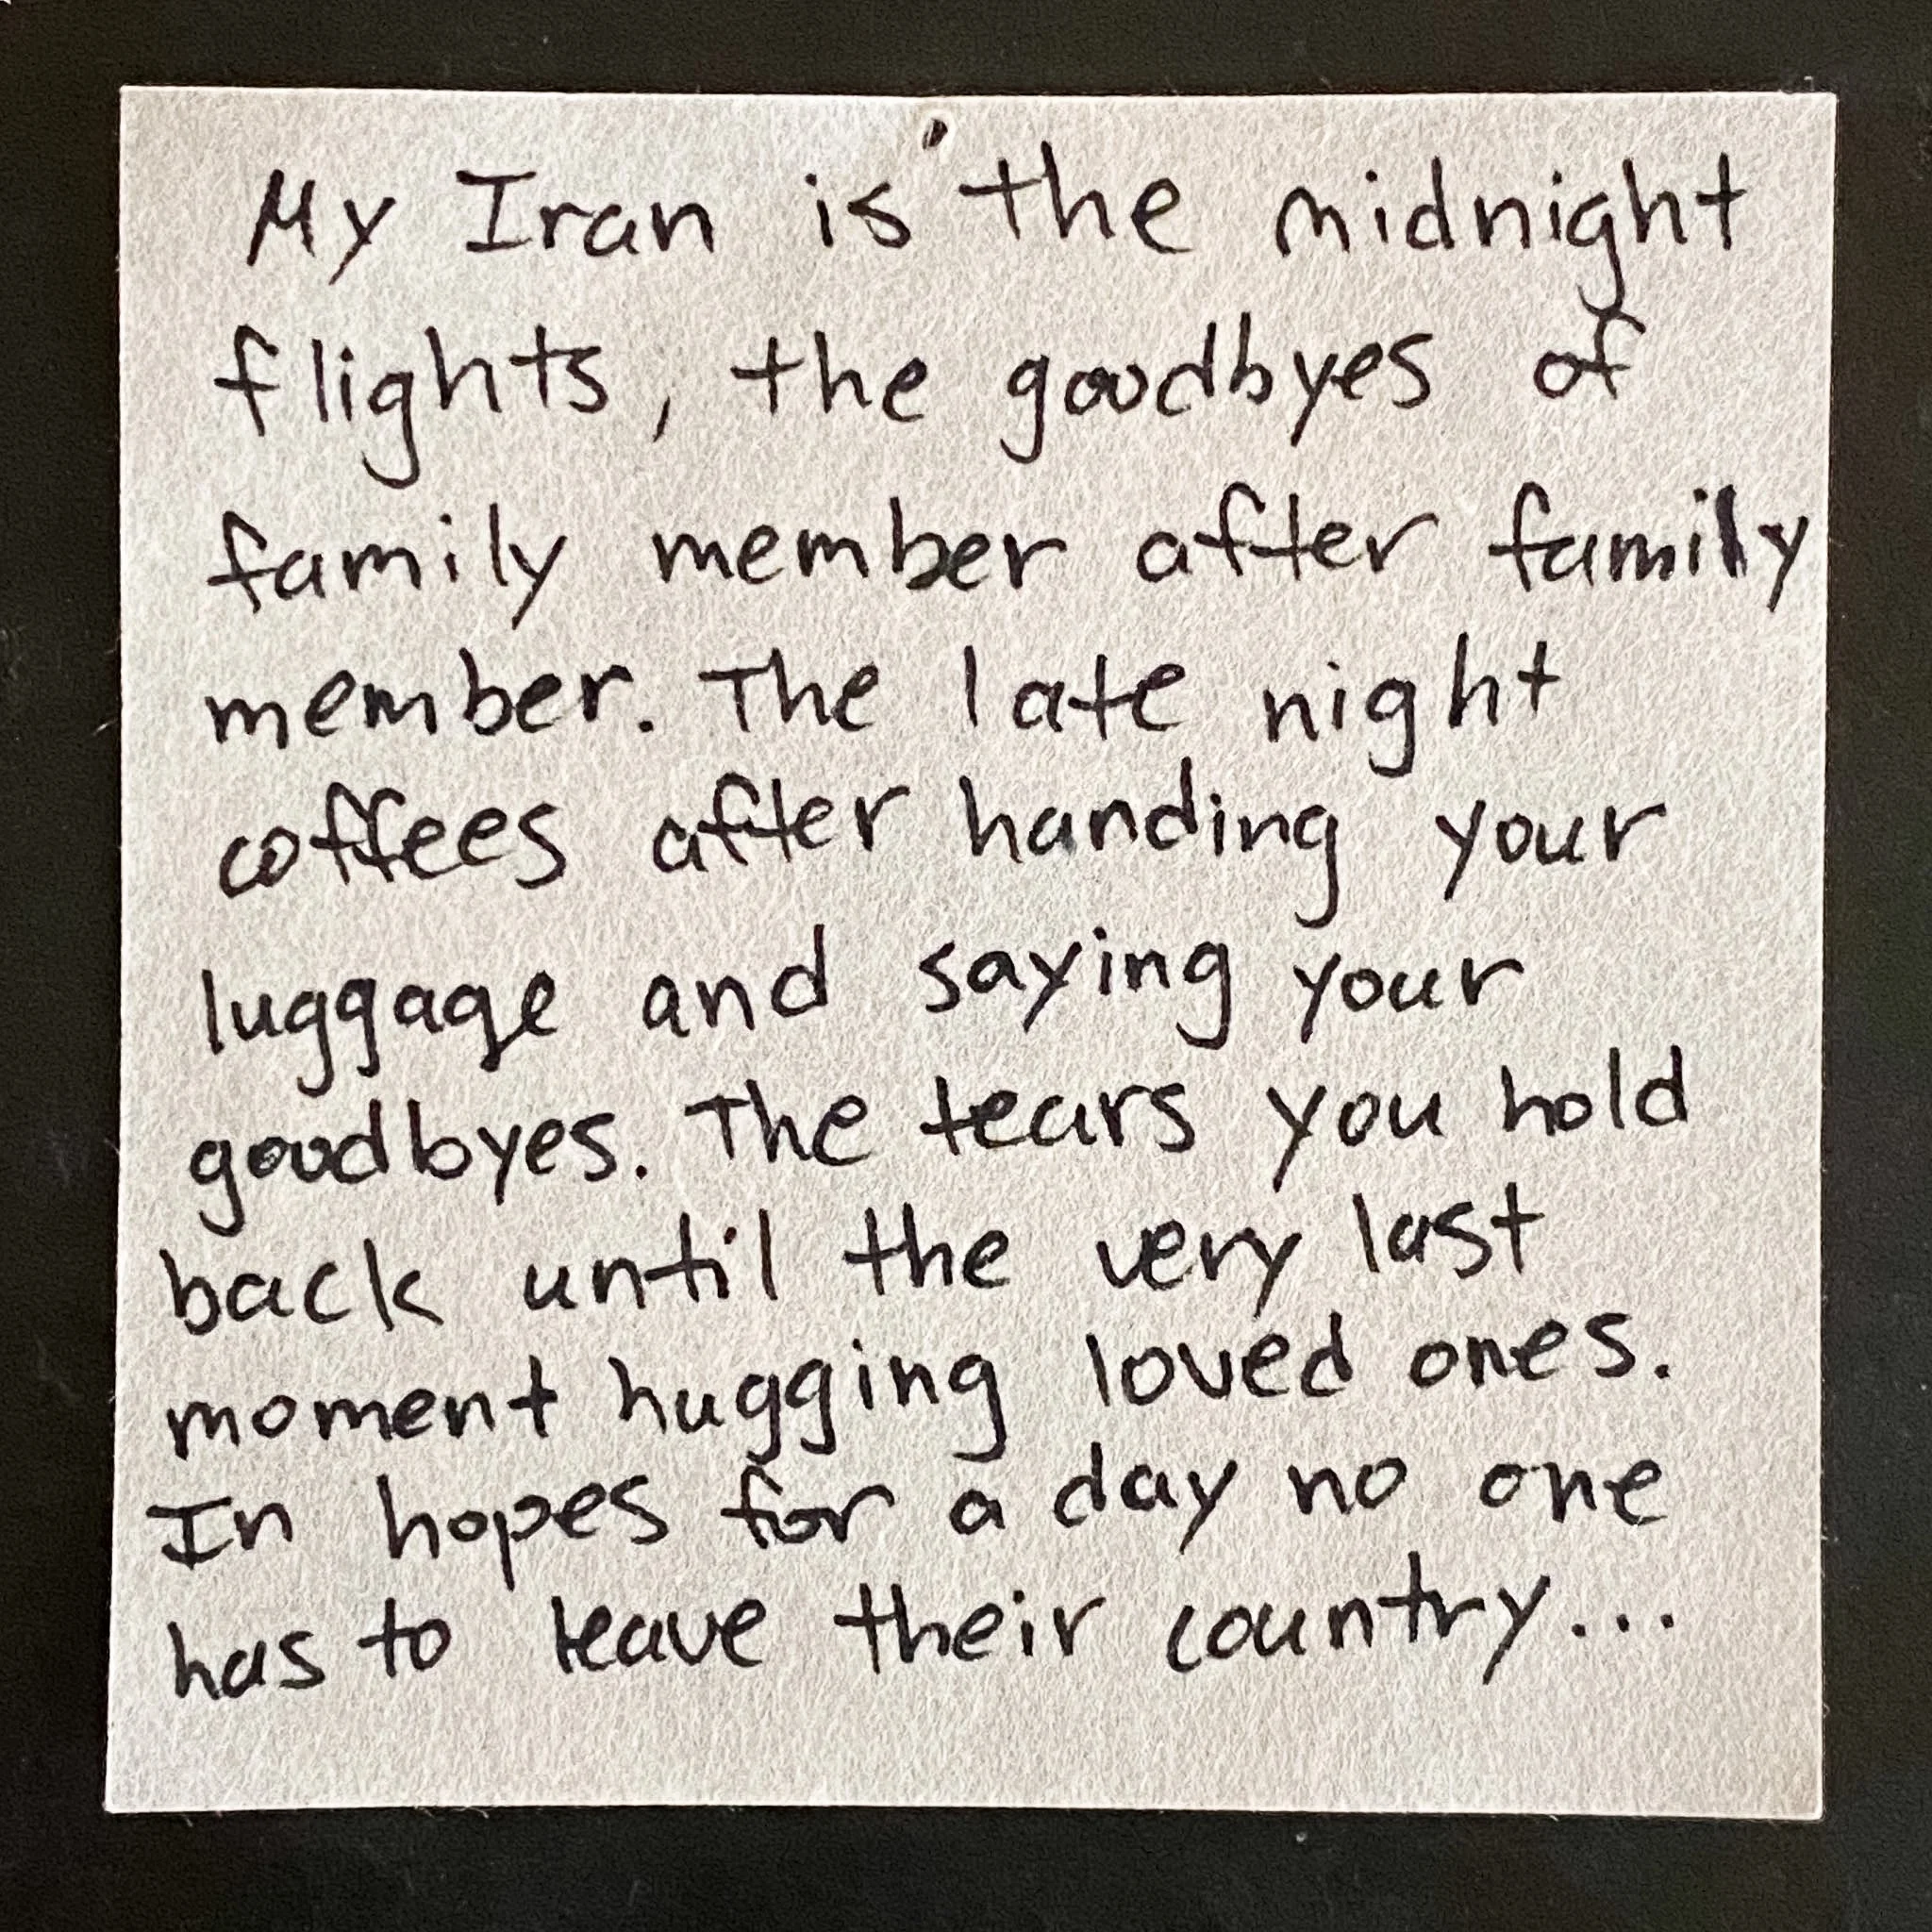 My Iran is the midnight
flights, the goodbyes of
family member after family
member. The late night
coffees after handing your
luggage and saying your
goodbyes. The tears you hold
back until the very last
moment hugging loved ones.
In hopes for a day no one
has to leave their country...